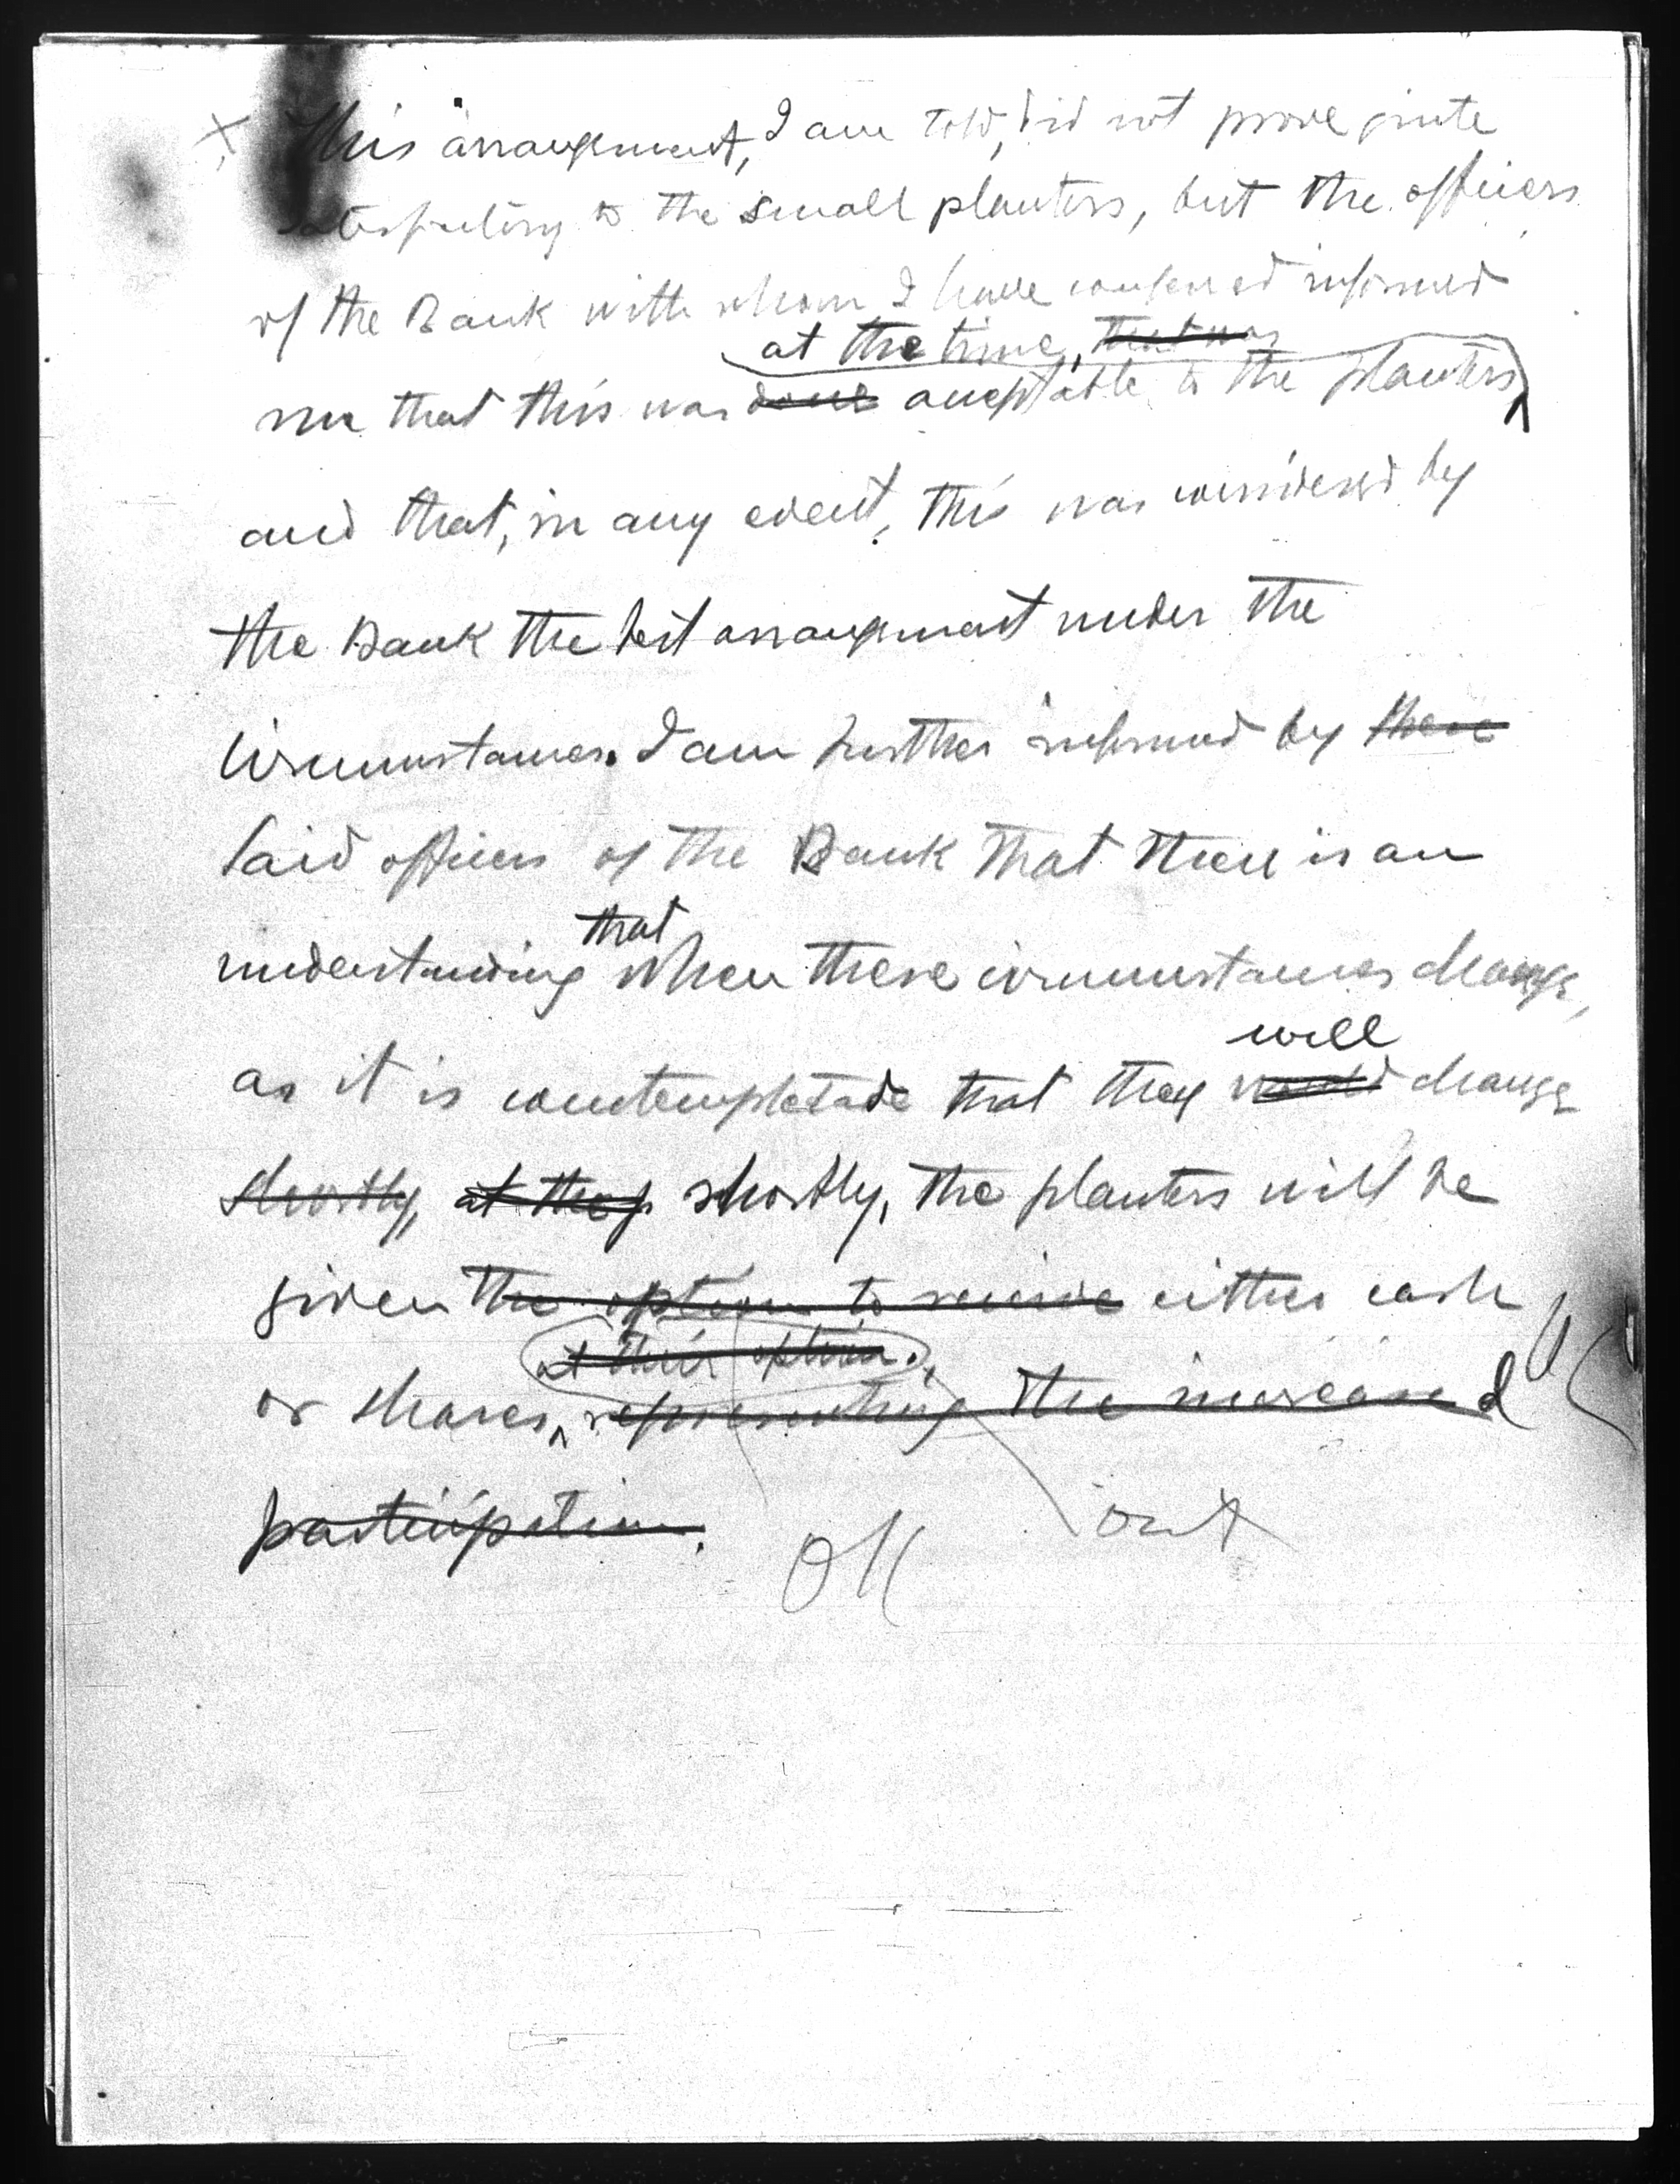 x This arrangement, I am told, did not prove quite
satisfactory to the small planters, but the officers
of the Bank with whom I have conferred informed
at the time, that was
me that this was done acceptable to the planters,
and that, in any event, this was considered by
the Bank the best arrangement under the
circumstances. I am further informed by these
said officers of the Bank that there is an
that
understanding when these circumstances change,
will
as it is contemplatade that they would change
shortly, at they shortly, the planters will be
given the option to receive either cash
at their option.
or shares, representing the increased
participation.
OK out